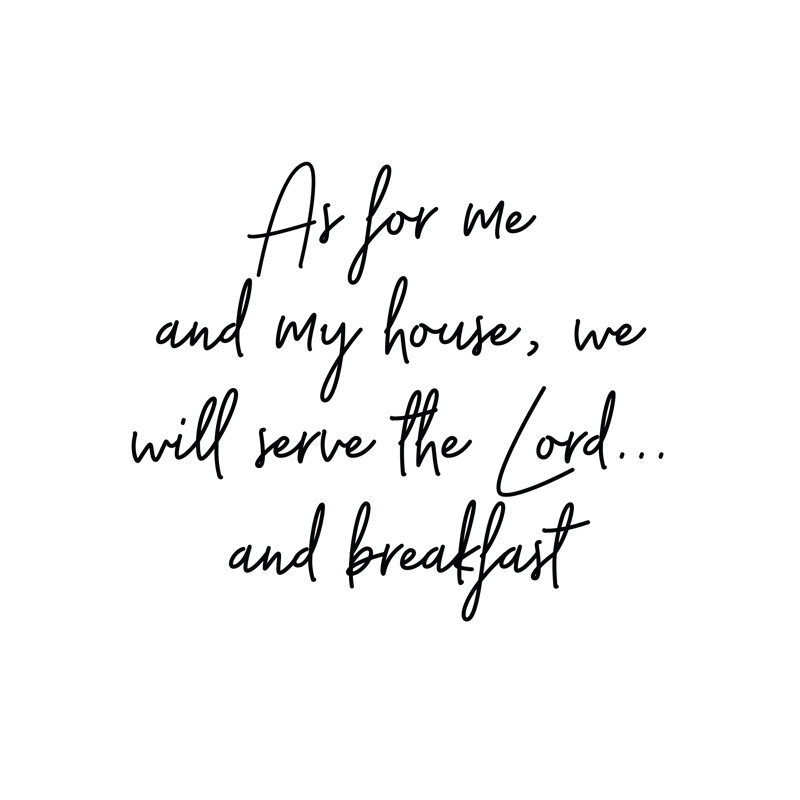 As for me
and my house, we
will serve the Lord...
and breakfast